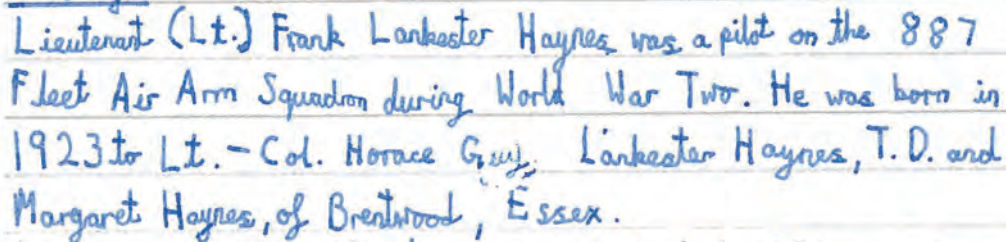 Lieutenant (Lt.) Frank Lankester Haynes was a pilot on the 887
Fleet Air Arm Squadron during World War Two. He was born in
1923 to Lt. - Col. Horace Guy Lankester Haynes, T.D. and
Margaret Haynes, of Brentwood, Essex.